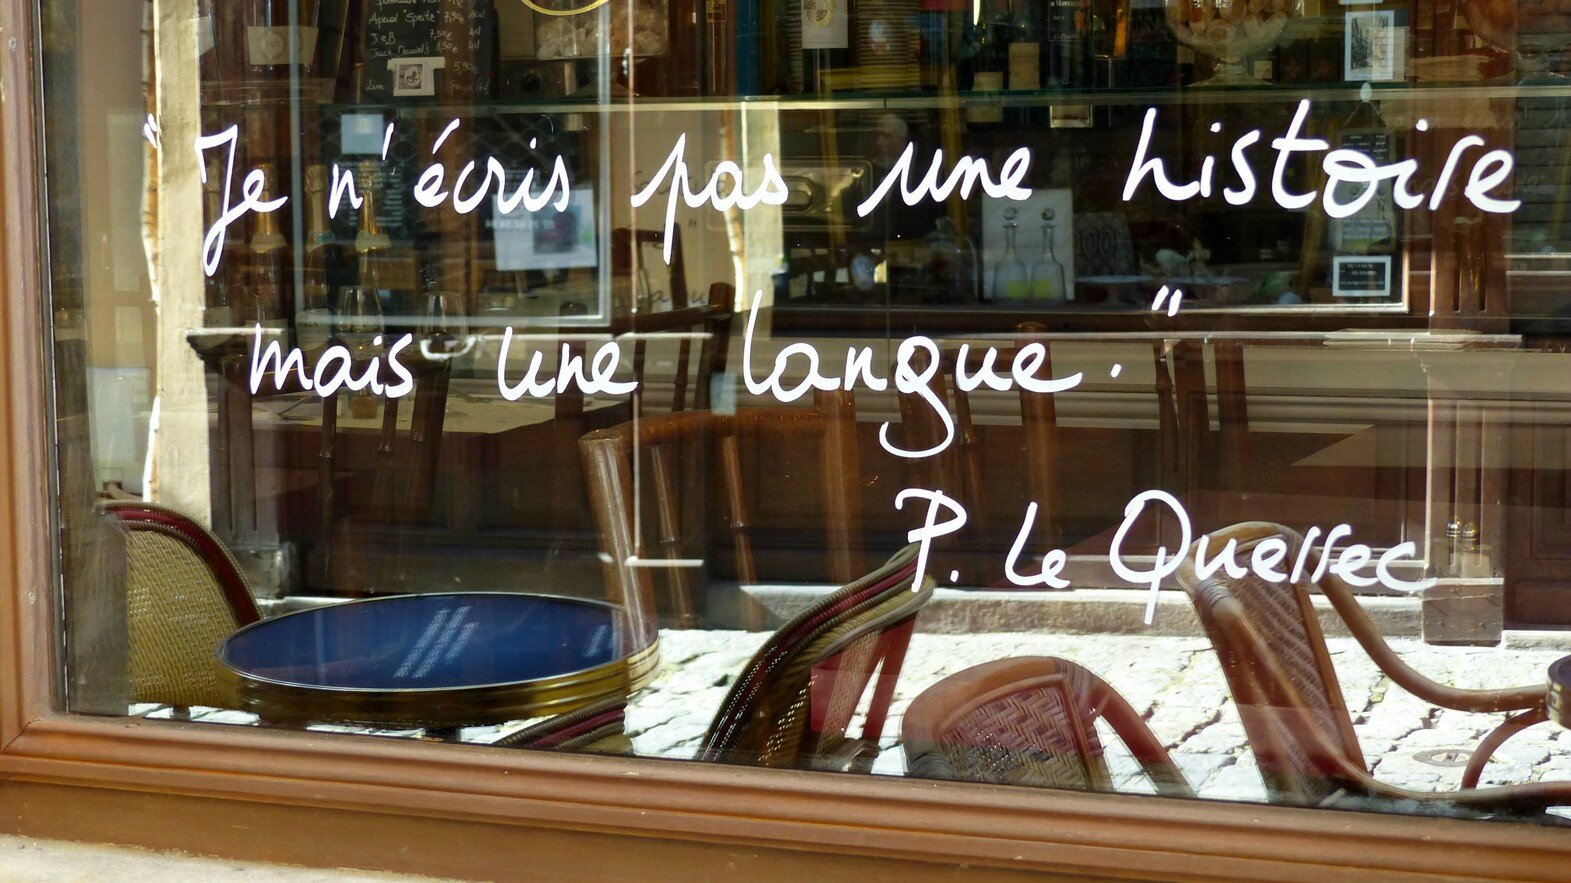 Aperol Spritz 7,50€
JeB 7,50€ 4cl
Jack Daniel's 8,50€ 4cl
"Je n'écris pas une histoire
mais une langue."
P. Le Quellec